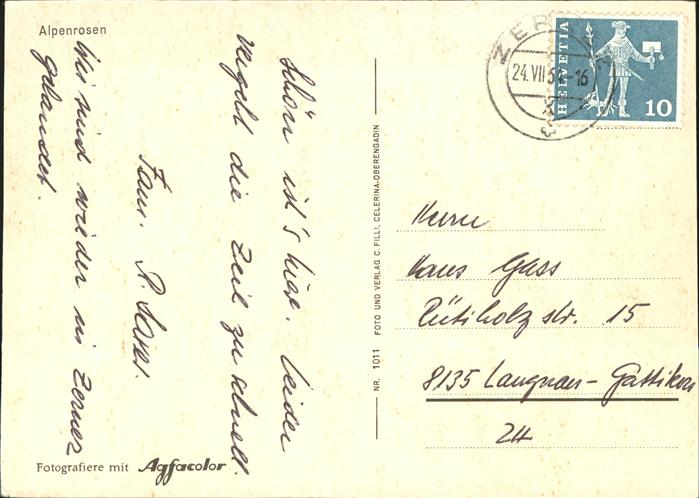 Alpenrosen
Schön ist's hier. Leider
vergeht die Zeit zu schnell.
Fam.
Wir sind wieder in Zernez
gelandet.
Fotografiere mit Agfacolor
NR. 1011 FOTO UND VERLAG C. FILLI, CELERINA-OBERENGADIN
ZER
24. VII 6 -16
HELVETIA
10
Herrn
Hans Gass
Rütiholzstr. 15
8135 Langnau-Gattikon
ZH